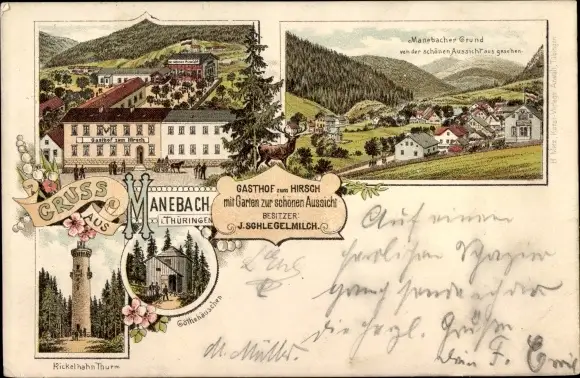 Manebacher Grund
von der schönen Aussicht aus gesehen.
Gasthof zum Hirsch.
GRUSS
AUS
MANEBACH
i. THÜRINGEN
GASTHOF zum HIRSCH
mit Garten zur schönen Aussicht
BESITZER:
J. SCHLEGELMILCH.
Göthehäuschen
Kickelhahn Thurm
Auf einem
herrlichen Spazier
gang sende ich der
die herzl. Grüße
Dein F.
M. Müller.